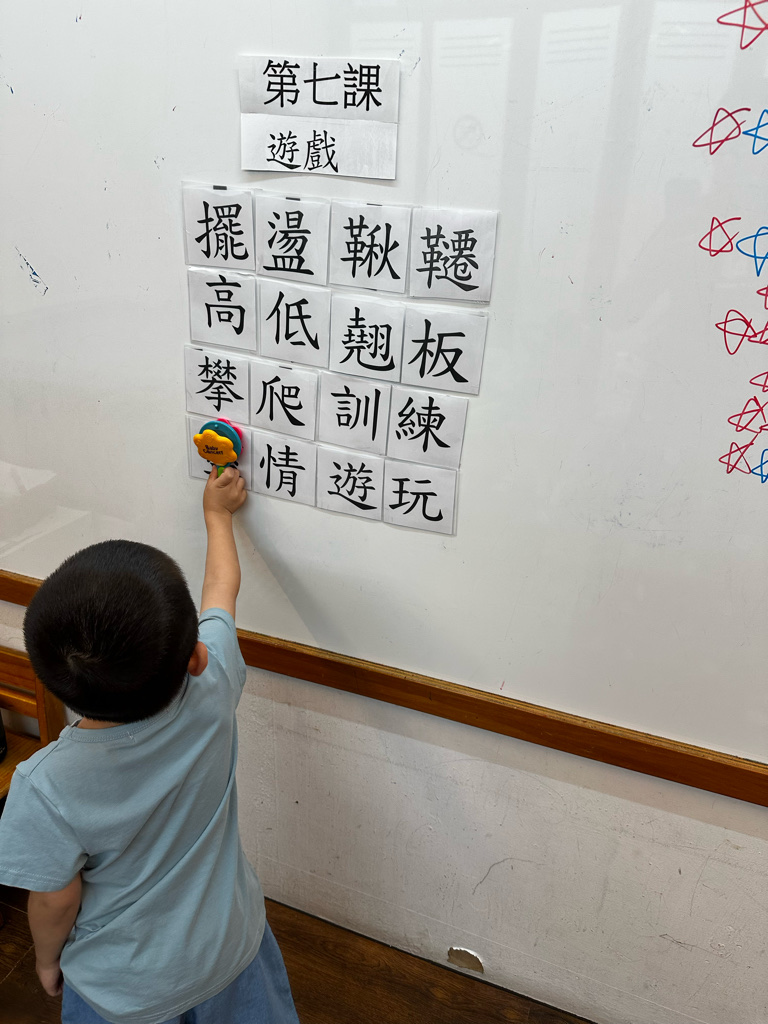 第七課
遊戲
擺盪鞦韆
高低翹板
攀爬訓練
情遊玩